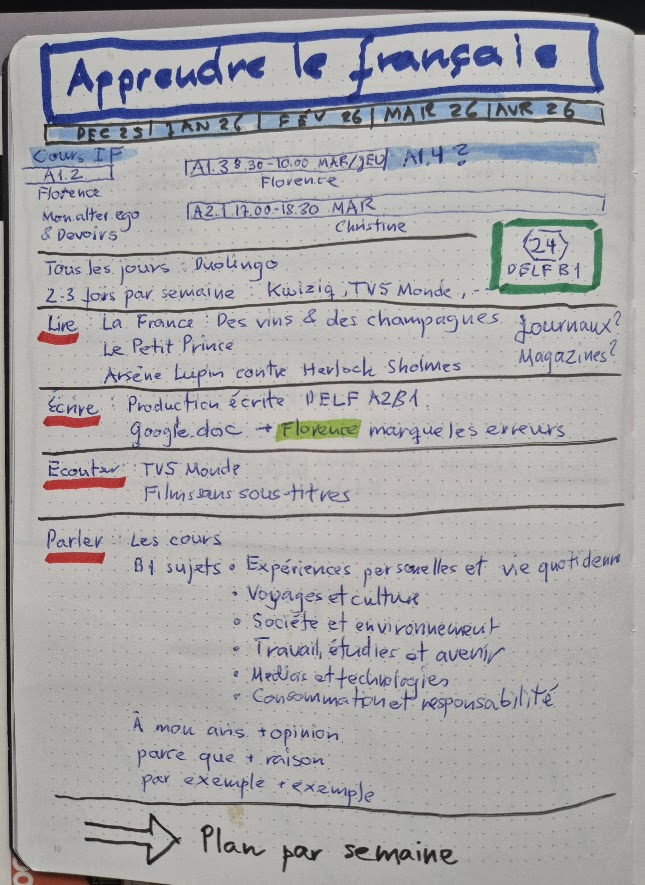 Apprendre le français
DEC 25 | JAN 26 | FÉV 26 | MAR 26 | AVR 26
Cours IF
A1.2
Florence
Mon alter ego
& Devoirs
A1.3 8.30-10.00 MAR/JEU A1.4?
Florence
A2.1 17.00-18.30 MAR
Christine
24
DELF B1
Tous les jours : Duolingo
2-3 fois par semaine : Kwiziq, TV5 Monde, --
Lire : La France : Des vins & des champagnes
Le Petit Prince
Arsène Lupin contre Herlock Sholmes
Journaux?
Magazines?
Écrire : Production écrite DELF A2B1
Google doc → Florence marque les erreurs
Écouter : TV5 Monde
Films sans sous-titres
Parler : Les cours
B1 sujets • Expériences personelles et vie quotidenne
• Voyages et culture
• Société et environnement
• Travail, études et avenir
• Medias et technologies
• Consommation et responsabilité
À mon avis + opinion
parce que + raison
par exemple + exemple
⇒ Plan par semaine
10